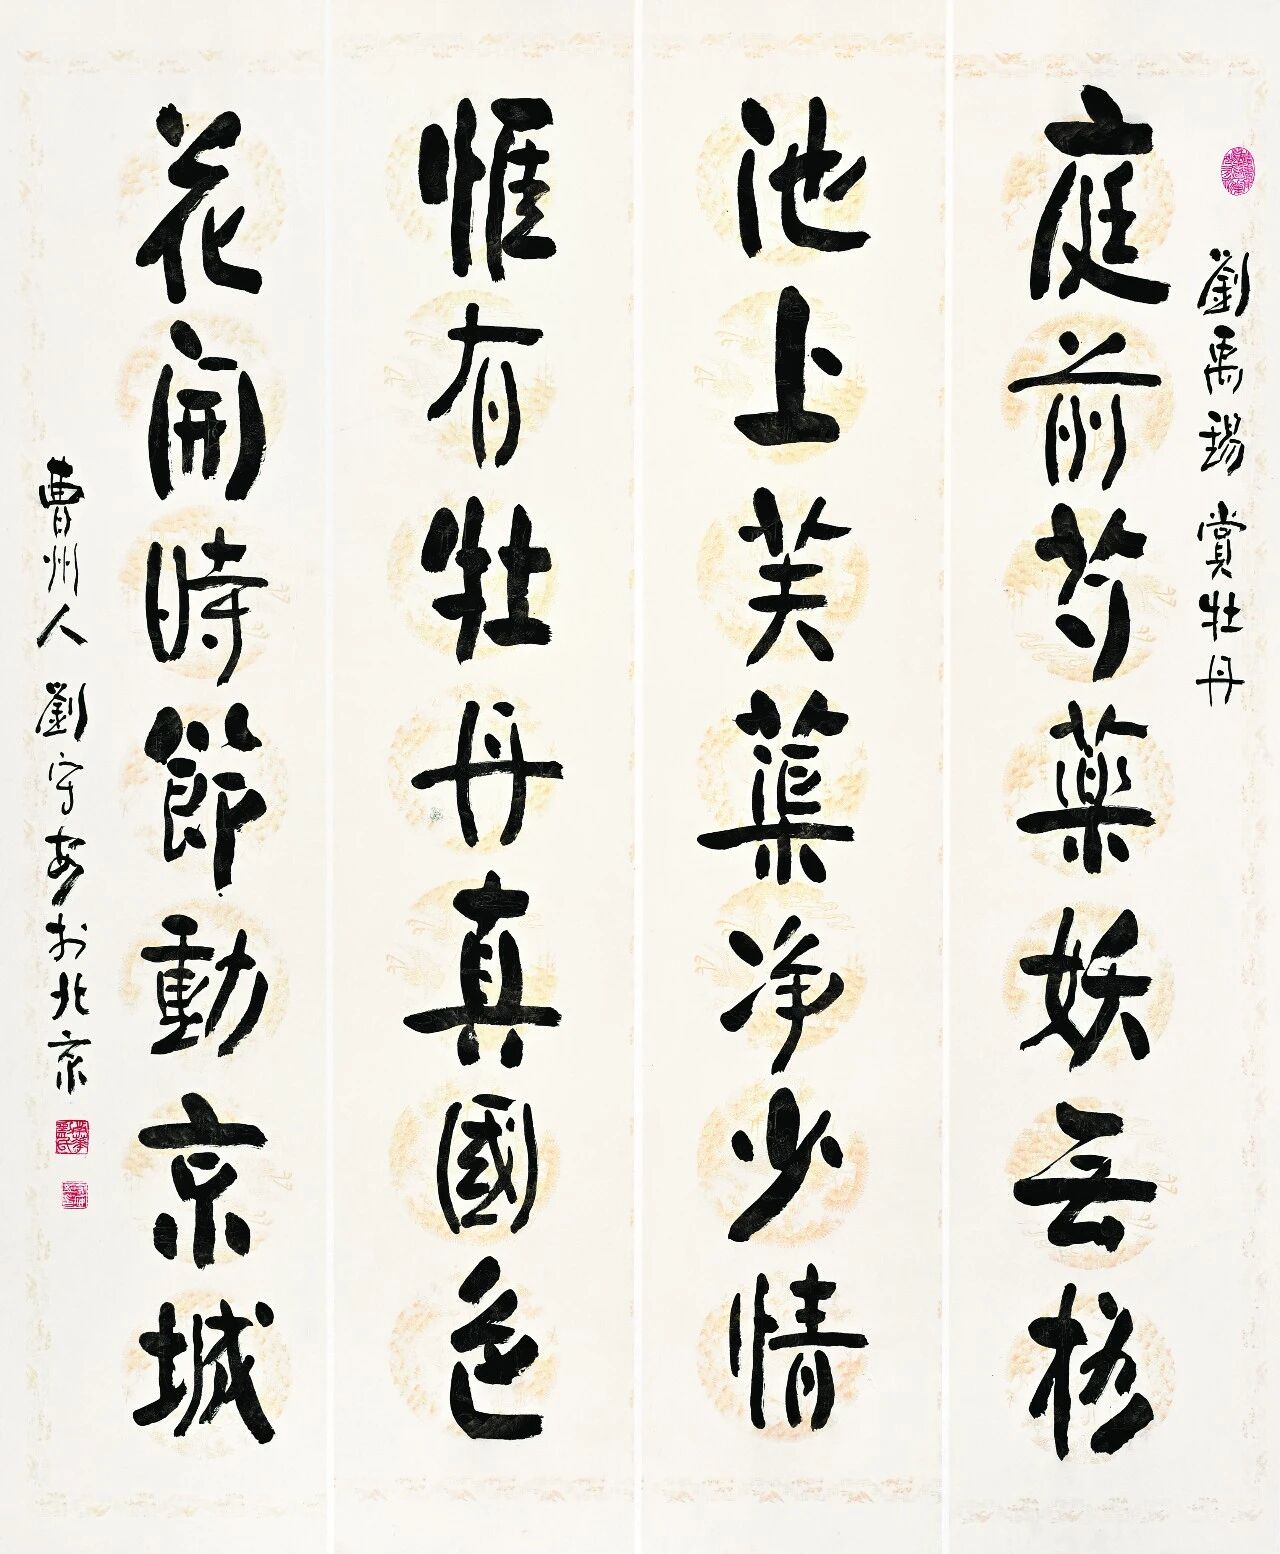 劉禹錫 賞牡丹
庭前芍藥妖无格
池上芙蕖净少情
惟有牡丹真國色
花開時節動京城
曹州人 劉守安於北京